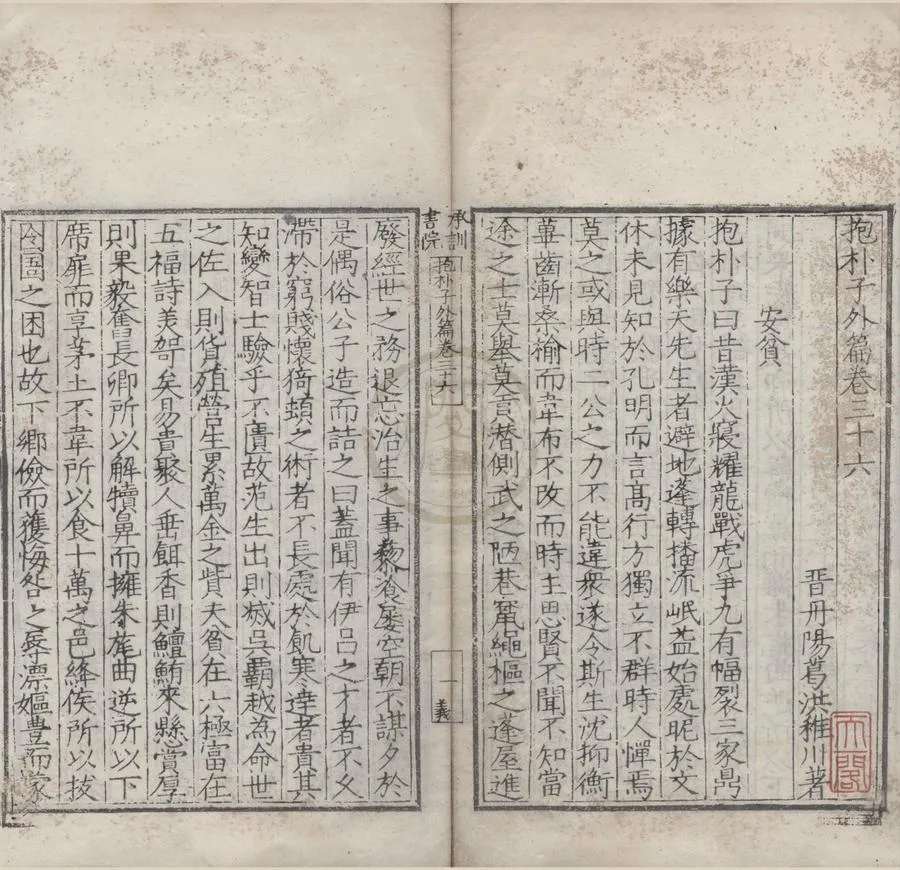 抱朴子外篇卷三十六
晉丹陽葛洪稚川著
安貧
抱朴子曰昔漢火寢耀龍戰虎爭九有幅裂三家鼎
據有樂天先生者避地蓬轉播流岷益始處昵於文
休未見知於孔明而言高行方獨立不群時人憚焉
莫之或與時二公之力不能違衆遂令斯生沈抑衡
蓽齒漸桑榆而韋布不改而時主思賢不聞不知當
途之士莫舉莫言潜側武之陋巷竄繩樞之蓬屋進
承訓書院
抱朴子外篇卷三十六
一
義
廢經世之務退忘治生之事藜湌屢空朝不謀夕於
是偶俗公子造而詰之曰蓋聞有伊吕之才者不乆
滯於窮賤懷猗頓之術者不長處於飢寒達者貴其
知變智士驗乎不匱故范生出則滅吳霸越為命世
之佐入則貨殖營生累萬金之貲夫貧在六極富在
五福詩美哿矣易貴聚人垂餌香則鱣鮪來懸賞厚
則果毅奮長卿所以解犢鼻而擁朱旄曲逆所以下
席扉而享茅土不韋所以食十萬之邑絳侯所以拔
囹圄之困也故下鄉儉而獲悔咎之辱漂嫗豊而蒙